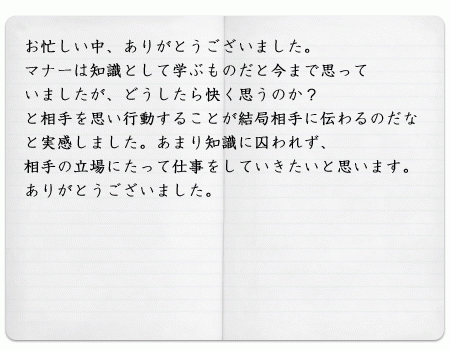 お忙しい中、ありがとうございました。
マナーは知識として学ぶものだと今まで思って
いましたが、どうしたら快く思うのか？
と相手を思い行動することが結局相手に伝わるのだな
と実感しました。あまり知識に囚われず、
相手の立場にたって仕事をしていきたいと思います。
ありがとうございました。